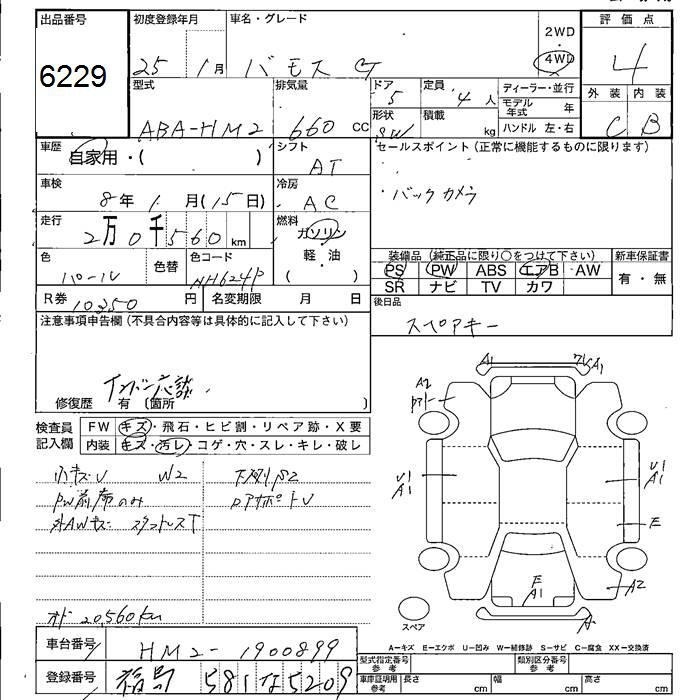 出品番号
6229
初度登録年月
25 年 1 月
車名・グレード
バモス G
2WD
・
4WD
評価点
4
外装 内装
C B
型式
ABA-HM2
排気量
660 cc
ドア
5
形状
SW
定員
4 人
積載
kg
ディーラー・並行
モデル年式 年
ハンドル 左・右
車歴
自家用・( )
シフト
AT
セールスポイント (正常に機能するものに限ります)
・バックカメラ
車検
8 年 1 月 (15 日)
冷房
AC
走行
2万0千560 km
燃料
ガソリン
軽・油
( )
色
パール
色替
色コード
NH624P
装備品 (純正品に限り○をつけて下さい)
PS PW ABS エアB AW
SR ナビ TV カワ
新車保証書
有・無
R券 10350 円
名変期限 月 日
後日品
スペアキー
注意事項申告欄 (不具合内容等は具体的に記入して下さい)
修復歴 有 (箇所 )
検査員
記入欄
FW キズ・飛石・ヒビ割・リペア跡・X要
内装 キズ・汚レ・コゲ・穴・スレ・キレ・破レ
小キズU W2
下廻りS2
PW前席のみ
外AWキズ スタットレスT
オド 20,560km
A1
A1
A2
U1
A1
U1
A1
E
E
A1
A2
A
スペア
A-キズ E-エクボ U-凹み W-補修跡 S-サビ C-腐食 XX-交換済
車台番号
HM2-1900899
登録番号
福島 581 な 5209
型式指定番号
参考
類別区分番号
参考
車庫証明用
参考
長さ cm
幅 cm
高さ cm